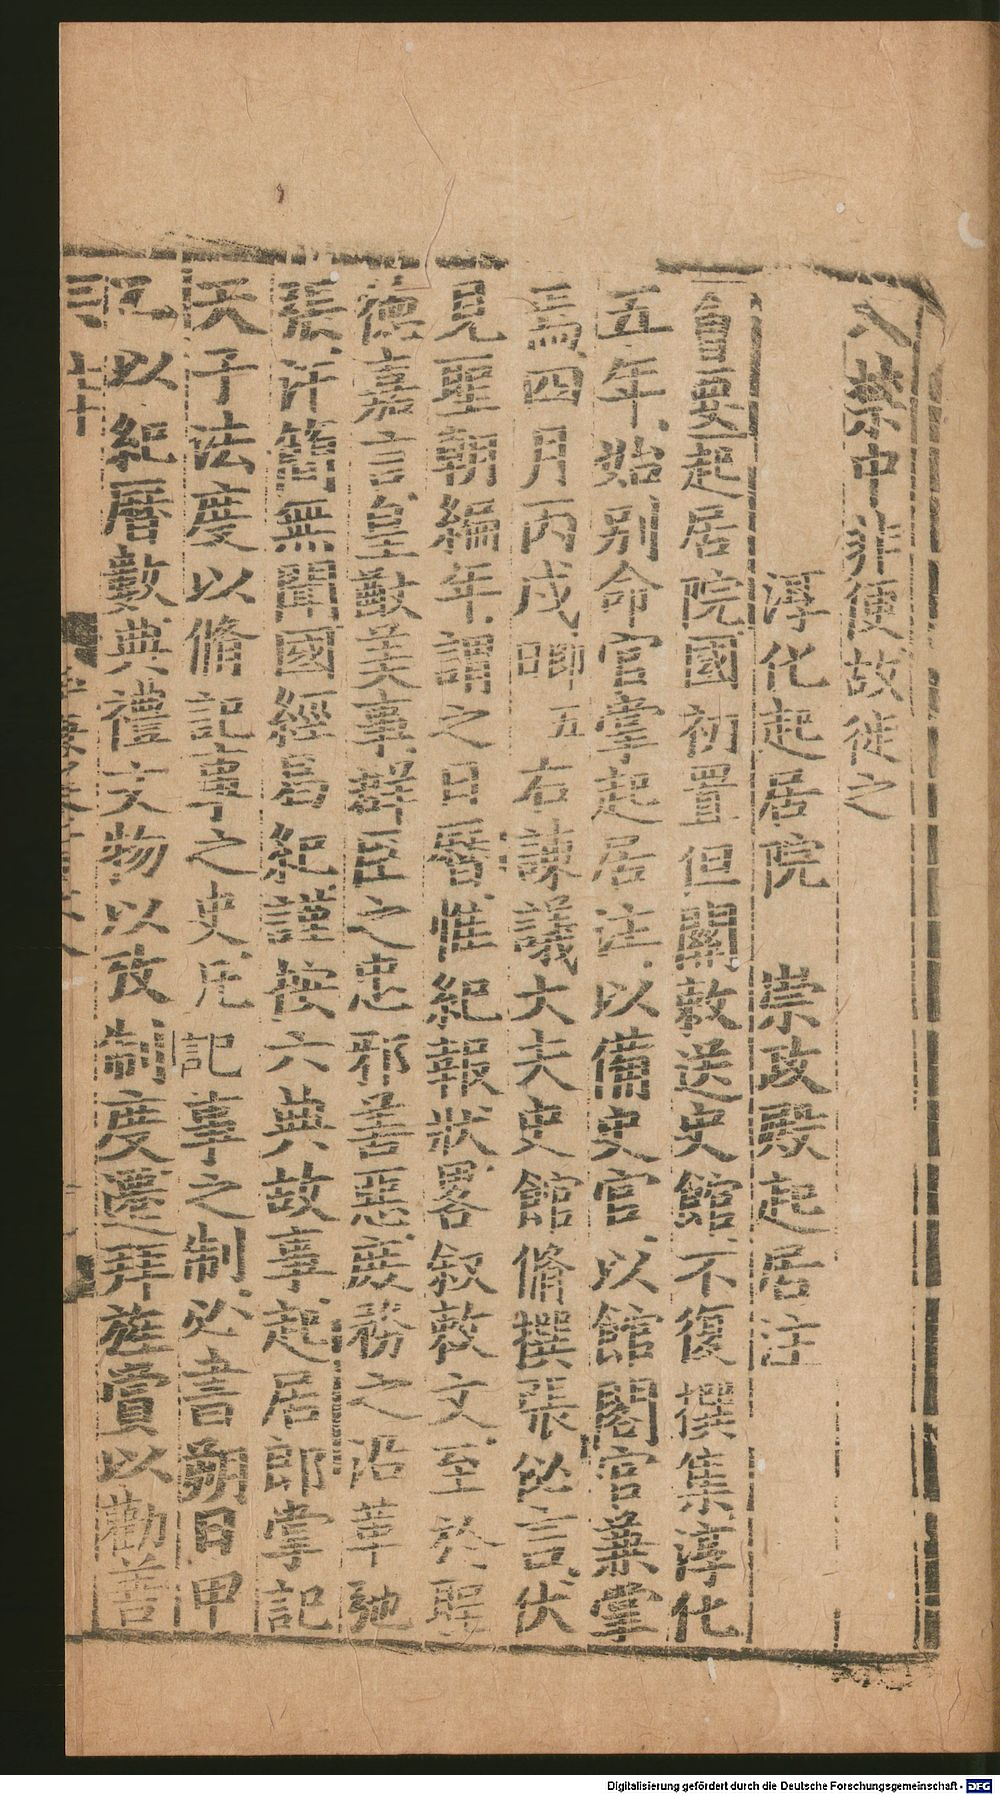 入禁中非使故徒之
淳化起居院　崇政殿起居注
會要起居院國初置但關敕送史館不復撰集淳化
五年始別命官掌起居注以備史官以館閣官兼掌
焉四月丙戌五右諫議大夫史館脩撰張佖言伏
見聖朝編年謂之日曆惟紀報狀畧叙敕文至於聖
德嘉言皇猷美事群臣之忠邪善惡庶務之沿革弛
張汗簡無聞國經曷紀謹按六典故事起居郎掌記
天子法度以脩記事之史凡記事之制必書朔日甲
乙以紀曆數典禮文物以攷制度遷拜旌賞以勸善
Digitalisierung gefördert durch die Deutsche Forschungsgemeinschaft - DFG